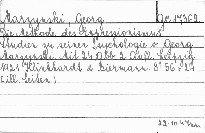 Marzynski, Georg Qr 17362.
Die Methode des Expressionismus
Studien zu seiner Psychologie v. Georg
Marzynski. Mit 24 Abb. 2. Aufl. Leipzig
1921 Klinkhardt & Biermann. 8° 56 / 27
Ill. Seiten.
22.10.